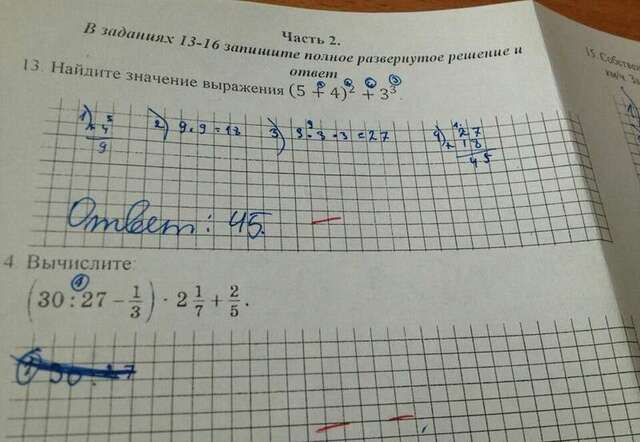 Часть 2.
В заданиях 13-16 запишите полное развернутое решение и
ответ
15. Собстве
км/ч. За
13. Найдите значение выражения (5 + 4)² + 3³
1) 5 + 4 9
2) 9 · 9 = 18
3) 3 · 3 · 3 = 27
4) 27 + 18 45
Ответ: 45.
4. Вычислите:
(30 : 27 − 1/3) · 2 1/7 + 2/5.
1) 30 : 27